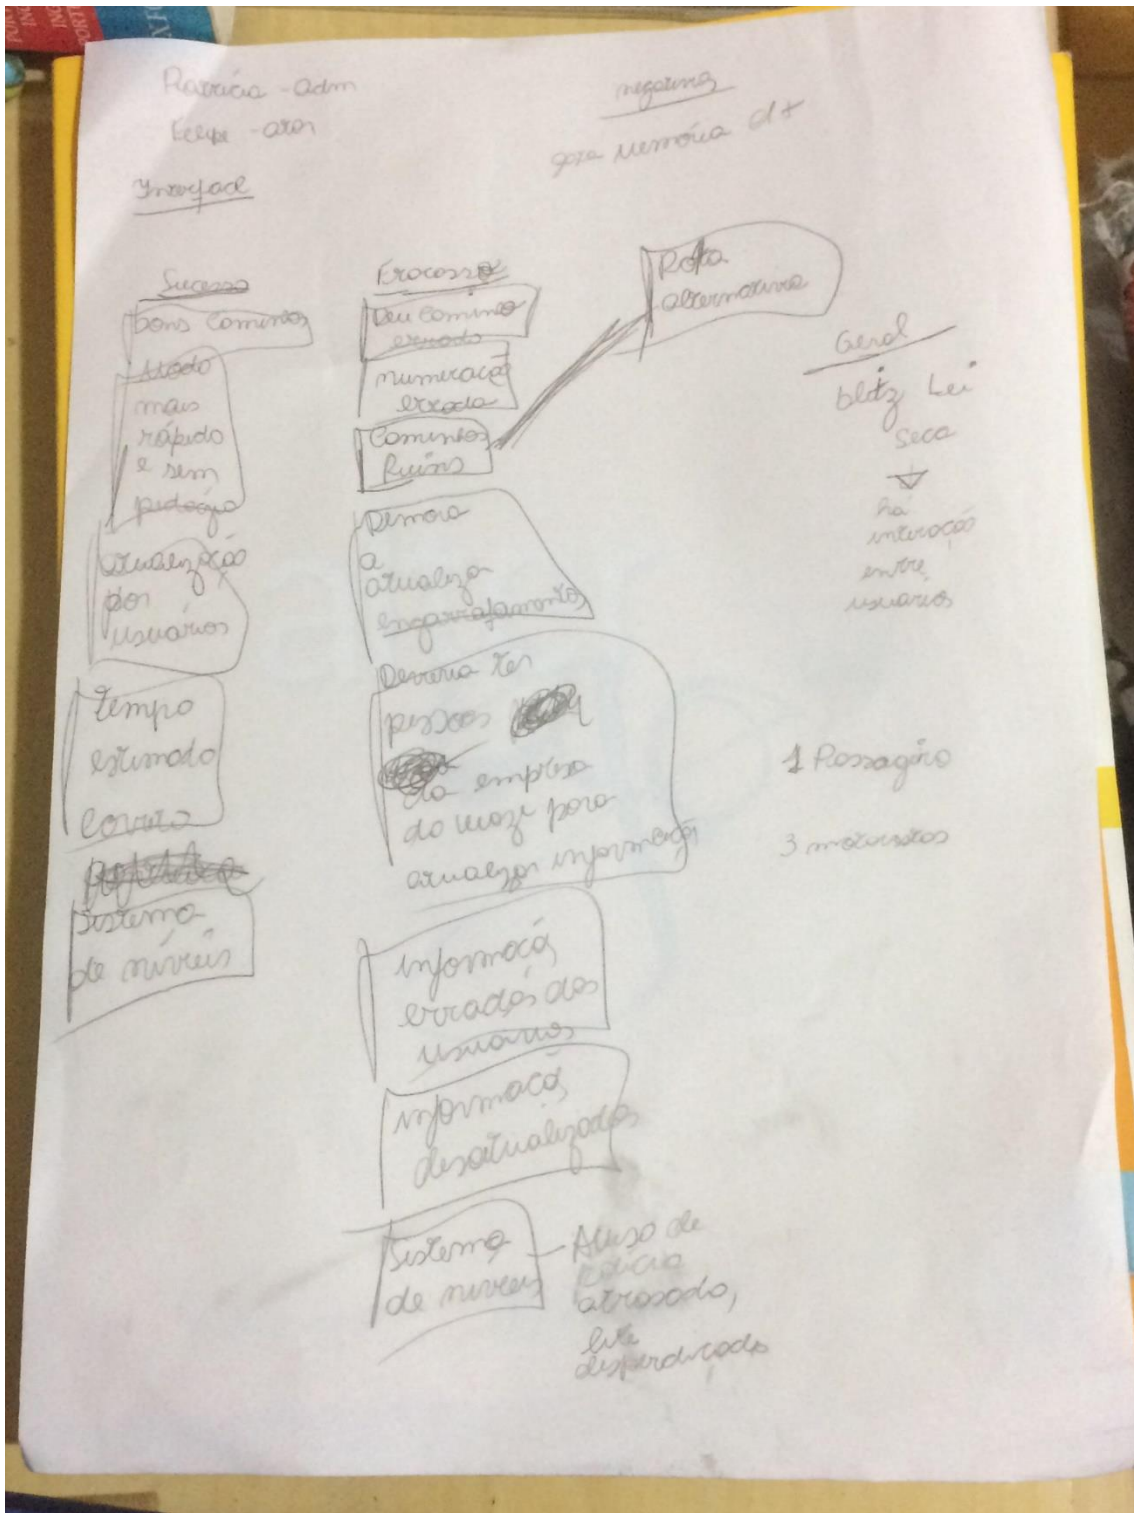 Patrícia - adm
Felipe -
Interface
negativa
gasta memória d+
Sucesso
bons caminhos
Modo
mais
rápido
e sem
pedágio
atualização
por
usuários
tempo
estimado
correto
Sistema
de níveis
Fracasso
Deu caminho
errado
numeração
errada
Caminhos
Ruins
Demora
a
atualizar
engarrafamentos
Deveria ter
pessoas
da empresa
do waze para
atualizar informação
informação
erradas dos
usuários
informação
desatualizadas
Sistema
de níveis
Aviso de
polícia
atrasado,
desperdiçado
Rota
alternativa
Geral
blitz Lei
Seca
há
interação
entre
usuários
1 Passageiro
3 motoristas